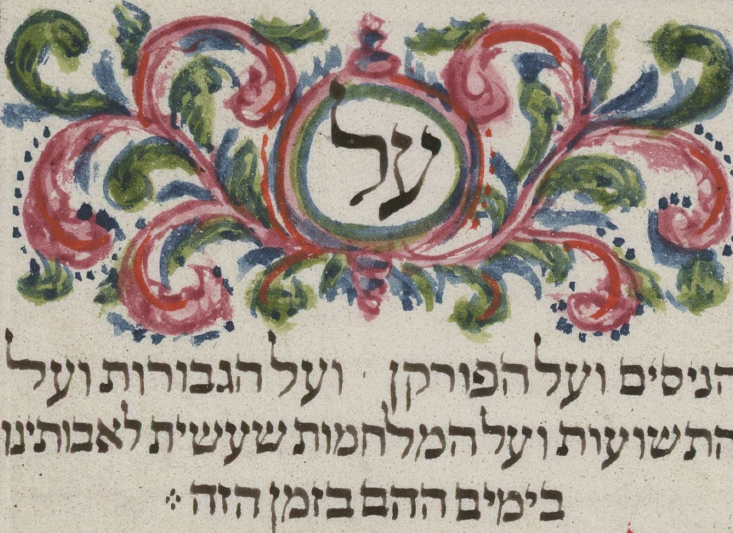 על
הניסים ועל הפורקן ועל הגבורות ועל
התשועות ועל המלחמות שעשית לאבותינו
בימים ההם בזמן הזה